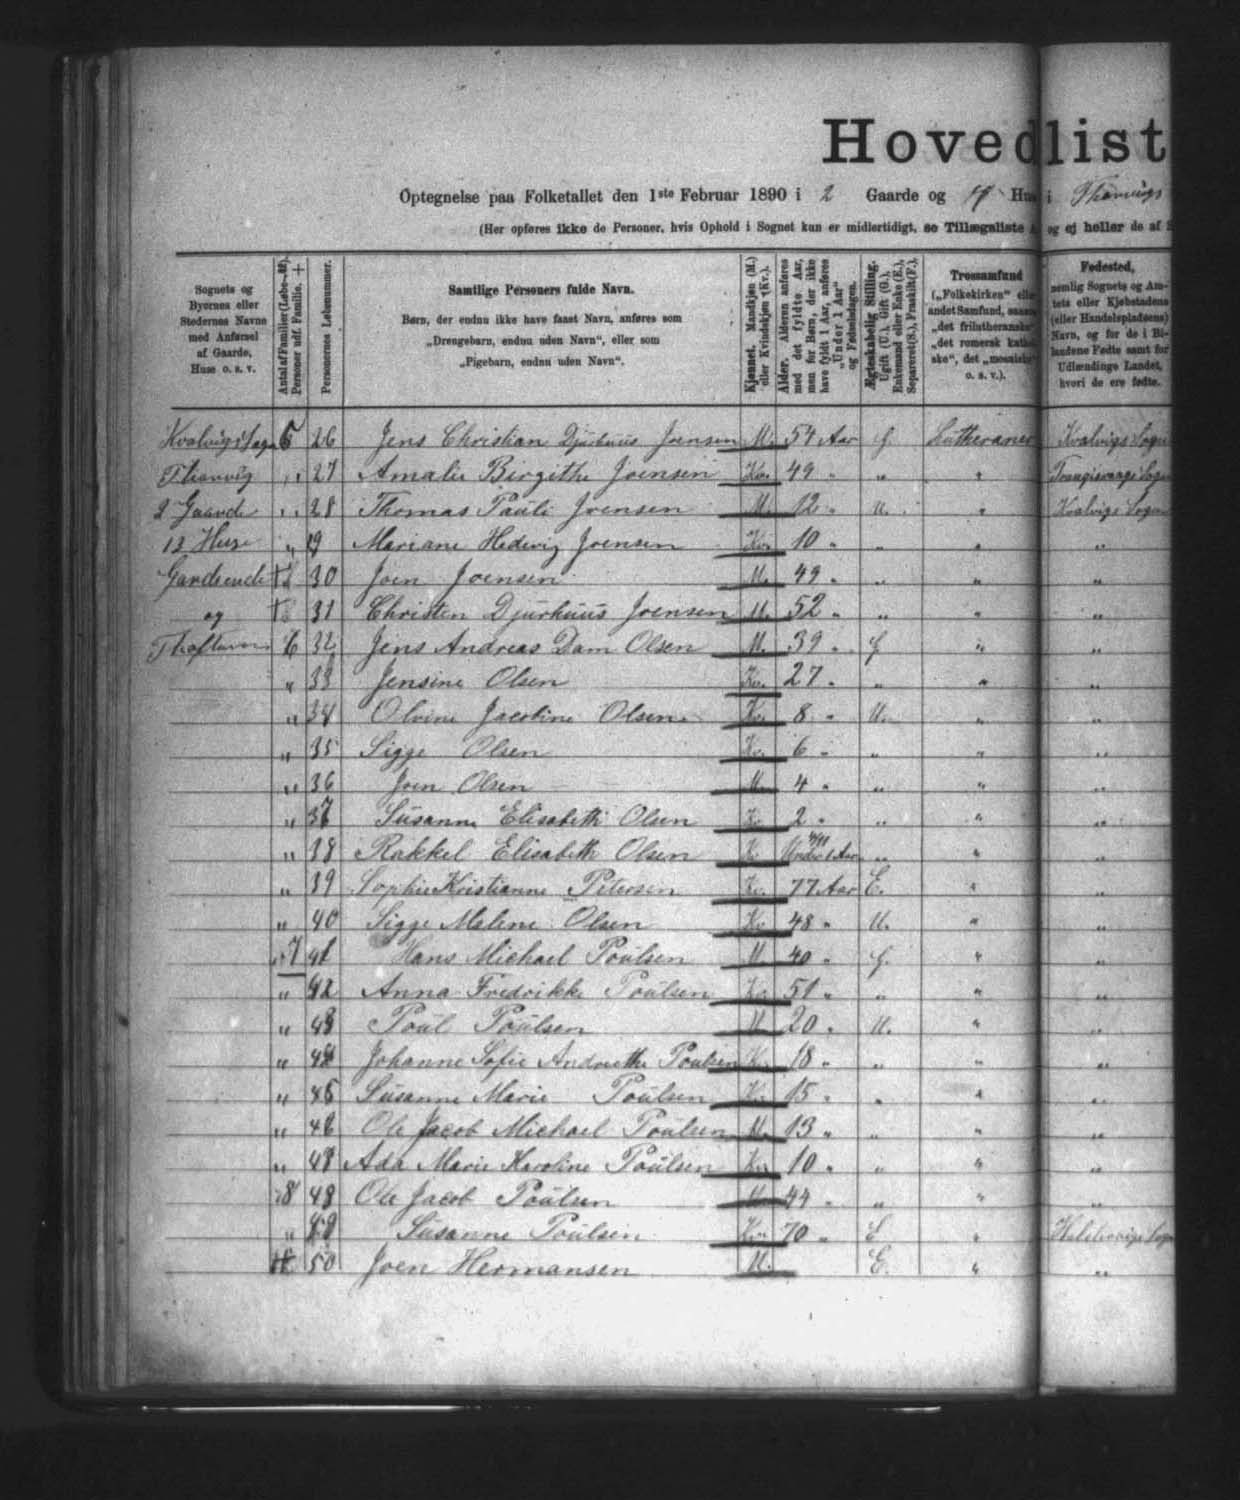 Hovedlist
Optegnelse paa Folketallet den 1ste Februar 1890 i 2 Gaarde og Hus i
(Her opføres ikke de Personer, hvis Ophold i Sognet kun er midlertidigt, se Tillægsliste og ej heller de af S
Sognets og Byernes eller Stedernes Navne med Anførsel af Gaarde, Huse o. s. v.
Antal af Familier (Løbe-№). Personer udf. Familie. +
Personernes Løbenummer.
Samtlige Personers fulde Navn.
Børn, der endnu ikke have faaet Navn, anføres som
„Drengebarn, endnu uden Navn“, eller som
„Pigebarn, endnu uden Navn“.
Kjønnet. Mandkjøn (M.) eller Kvindekjøn (Kv.).
Alder. Alderen anføres med det fyldte Aar, men for Børn, der ikke have fyldt 1 Aar, anføres „Under 1 Aar“ og Fødselsdagen.
Ægteskabelig Stilling. Ugift (U.), Gift (G.), Enkemand eller Enke (E.), Separeret (S.), Fraskilt (F.).
Trossamfund
(„Folkekirken“ elle
andet Samfund, saaso
„det frilutheranske“
„det romersk katho
ske“, det „mosaiske“
o. s. v.).
Fødested,
nemlig Sognets og Am-
tets eller Kjøbstadens
(eller Handelspladsens)
Navn, og for de i Bi-
landene Fødte samt for
Udlændinge Landet,
hvori de ere fødte.
Kvalvigs Sogn 5 26 Jens Christian Djurhuus Joensen M. 54 Aar G. Lutheraner Kvalvigs Sogn
Thorsvig „ 27 Amalie Birgithe Joensen Kv. 49 „ „ „ Trangisvaags Sogn
2 Gaarde „ 28 Thomas Pauli Joensen M. 12 „ U. „ Kvalvigs Sogn
12 Huse „ 29 Mariane Hedevig Joensen Kv. 10 „ „ „ „
30 Joen Joensen M. 49 „ „ „ „
og 31 Christen Djurhuus Joensen M. 52 „ „ „ „
6 32 Jens Andreas Dam Olsen M. 39 „ G „ „
„ 33 Jensine Olsen Kv. 27 „ „ „ „
„ 34 Olvine Jacobine Olsen Kv. 8 „ U. „ „
„ 35 Sigge Olsen Kv. 6 „ „ „ „
„ 36 Joen Olsen M. 4 „ „ „ „
„ 37 Susanne Elisabeth Olsen Kv. 2 „ „ „ „
„ 38 Rakkel Elisabeth Olsen Kv. Under 1 Aar „ „ „
„ 39 Sophie Kristianne Petersen Kv. 77 Aar E. „ „
„ 40 Sigge Malene Olsen Kv. 48 „ U. „ „
7 41 Hans Michael Poulsen M. 40 „ G. „ „
„ 42 Anna Fredrikke Poulsen Kv. 51 „ „ „ „
„ 43 Poul Poulsen M. 20 „ U. „ „
„ 44 Johanne Sofie Andrethe Poulsen Kv. 18 „ „ „ „
„ 45 Susanne Marie Poulsen Kv. 15 „ „ „ „
„ 46 Ole Jacob Michael Poulsen M. 13 „ „ „ „
„ 47 Ada Marie Karoline Poulsen Kv. 10 „ „ „ „
8 48 Ole Jacob Poulsen M. 44 „ „ „ „
„ 49 Susanne Poulsen Kv. 70 „ E „
50 Joen Hermansen M. E. „ „